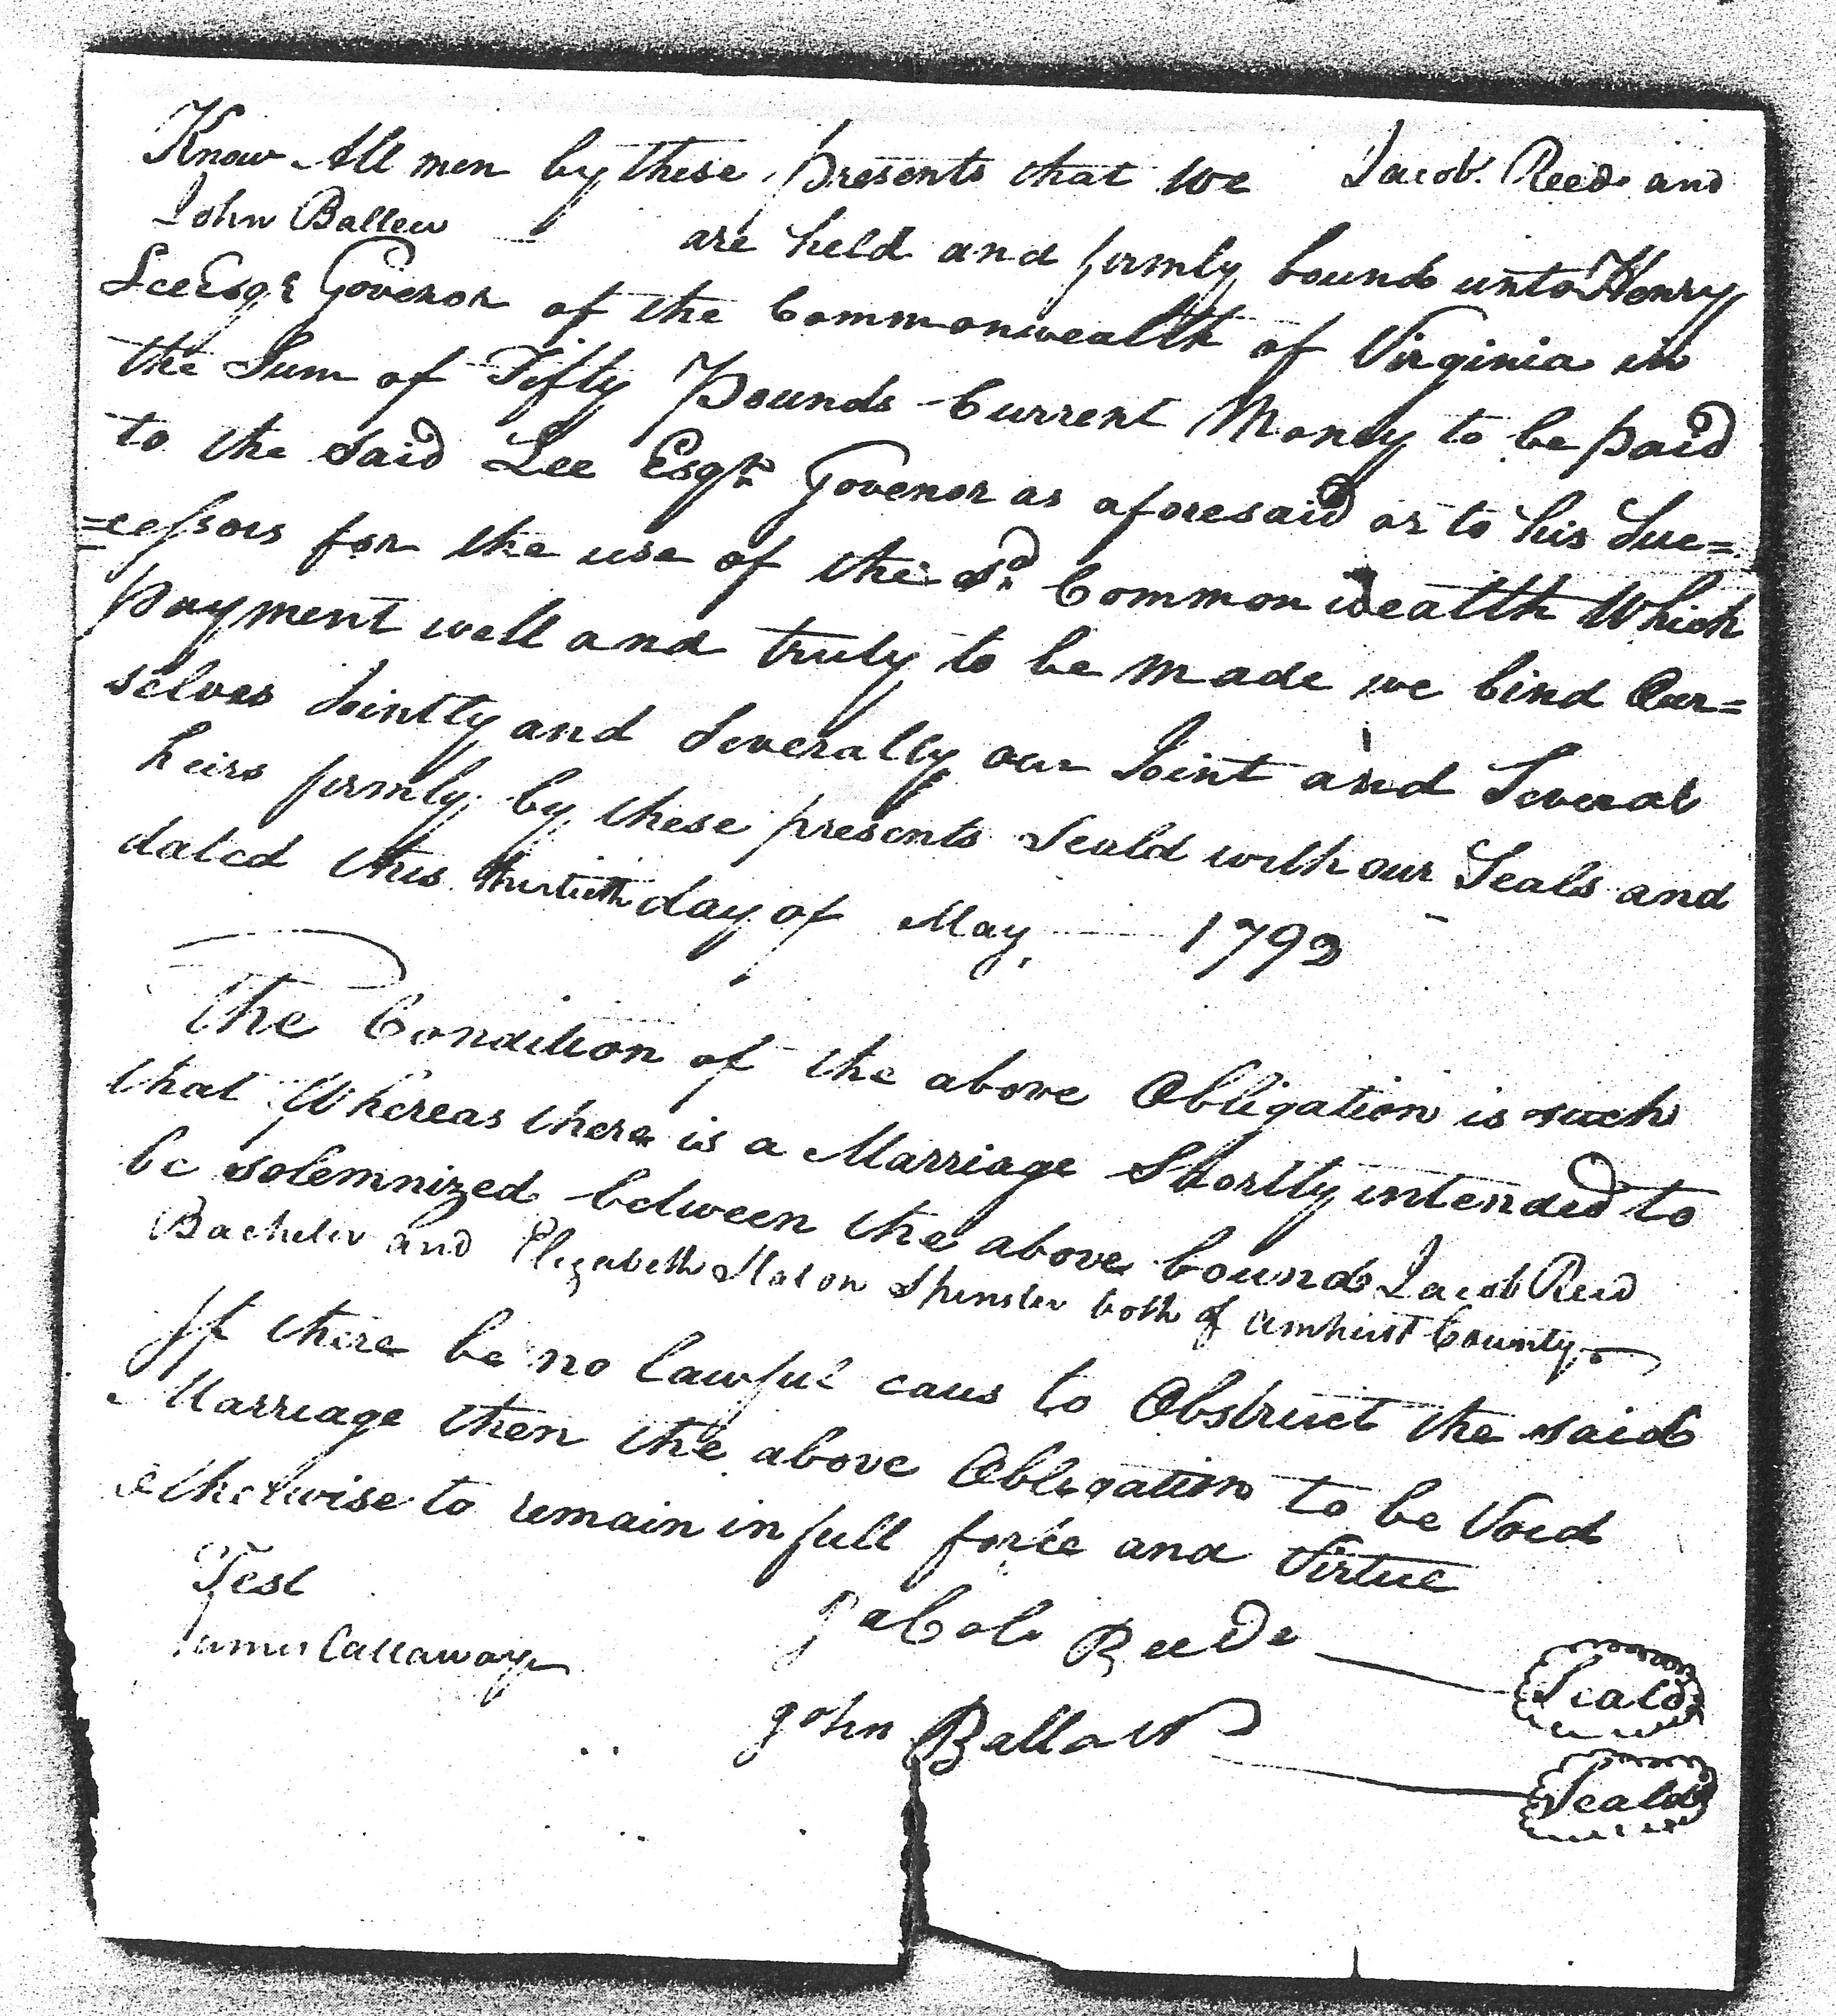 Know All men by these presents that we Jacob Reed and
John Ballew are held and firmly bound unto Henry
Lee Esqr Govenor of the Commonwealth of Virginia in
the Sum of Fifty Pounds Current Money to be paid
to the Said Lee Esqr. Govenor as aforesaid or to his Suc=
=cessors for the use of the sd. Commonwealth Which
payment well and truly to be made we bind Our=
selves Jointly and Severally our Joint and Several
heirs firmly by these presents Seald with our Seals and
dated this thirtieth day of May 1792
The Condition of the above Obligation is such
that Whereas there is a Marriage Shortly intended to
be solemnized between the above bound Jacob Reed
Bacheler and Elizabeth Spinster both of Amherst County
If there be no lawful caus to Obstruct the said
Marriage then the above Obligation to be Void
otherwise to remain in full force and Virtue
Test
James Callaway
Jacob Reede Seald
John Ballow Seald